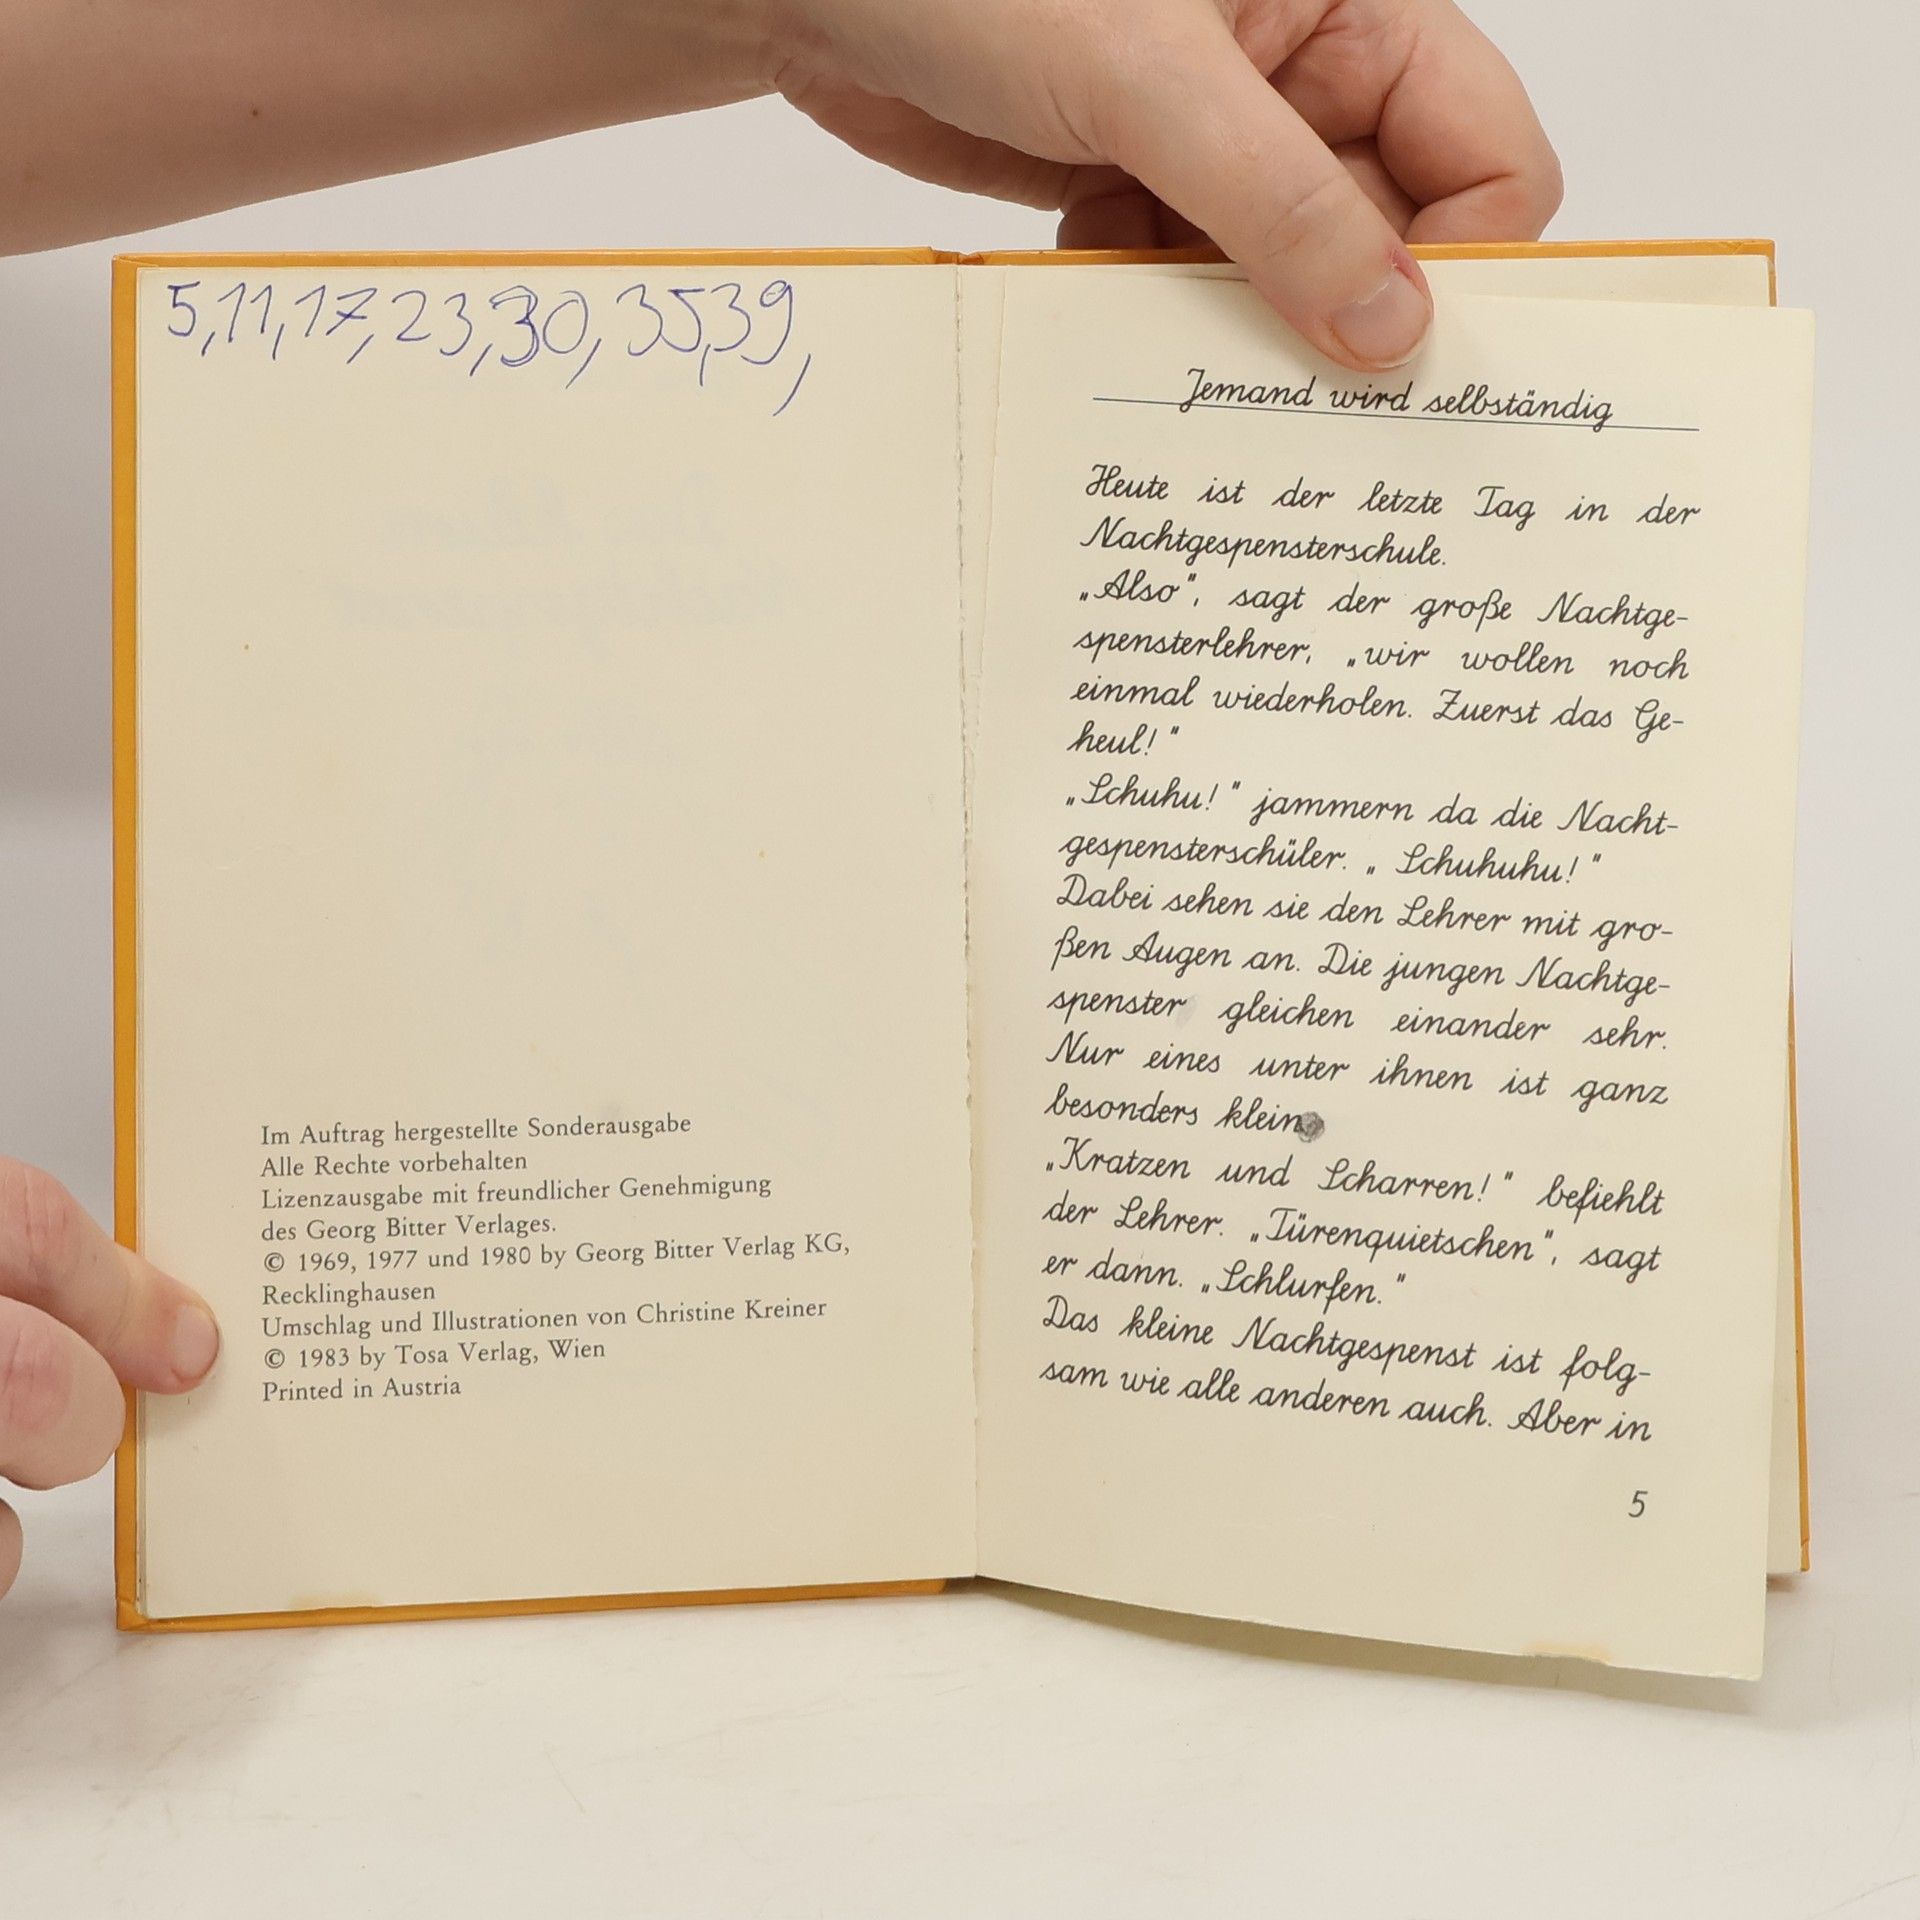 5, 11, 17, 23, 30, 35, 39,
Im Auftrag hergestellte Sonderausgabe
Alle Rechte vorbehalten
Lizenzausgabe mit freundlicher Genehmigung
des Georg Bitter Verlages.
© 1969, 1977 und 1980 by Georg Bitter Verlag KG,
Recklinghausen
Umschlag und Illustrationen von Christine Kreiner
© 1983 by Tosa Verlag, Wien
Printed in Austria
Jemand wird selbständig
Heute ist der letzte Tag in der
Nachtgespensterschule.
„Also“, sagt der große Nachtge-
spensterlehrer, „wir wollen noch
einmal wiederholen. Zuerst das Ge-
heul!“
„Schuhu!“ jammern da die Nacht-
gespensterschüler. „Schuhuhu!“
Dabei sehen sie den Lehrer mit gro-
ßen Augen an. Die jungen Nachtge-
spenster gleichen einander sehr.
Nur eines unter ihnen ist ganz
besonders klein.
„Kratzen und Scharren!“ befiehlt
der Lehrer. „Türenquietschen“, sagt
er dann. „Schlurfen.“
Das kleine Nachtgespenst ist folg-
sam wie alle anderen auch. Aber in
5